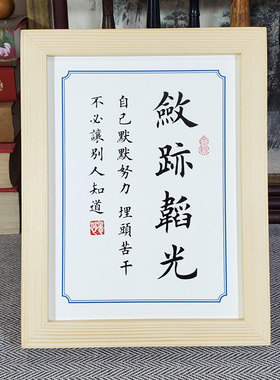 斂跡韜光
自己默默努力 埋頭苦干
不必讓別人知道